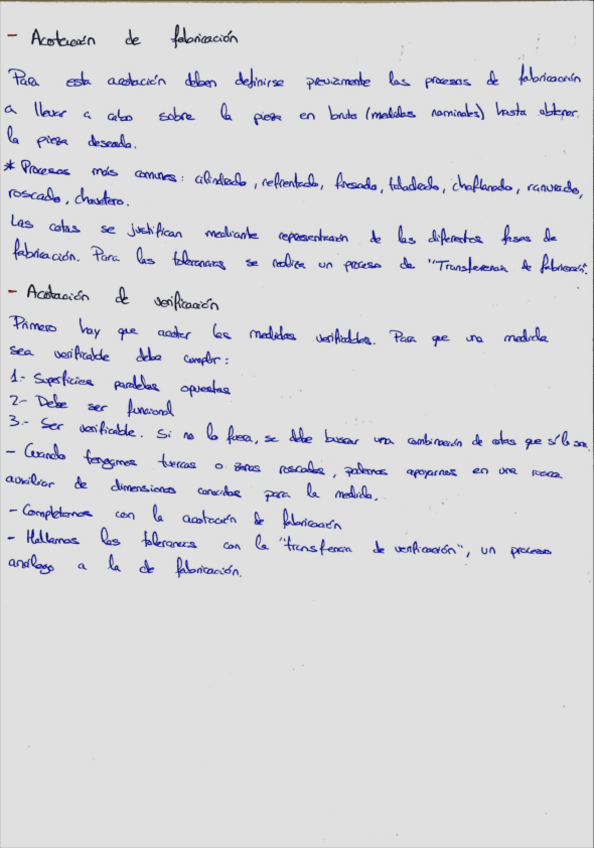 - Acotación de fabricación
Para esta acotación deben definirse previamente los procesos de fabricación
a llevar a cabo sobre la pieza en bruto (medidas nominales) hasta obtener
la pieza deseada.
* Procesos más comunes: cilindrado, refrentado, fresado, taladrado, chaflanado, ranurado,
roscado, chavetero.
Las cotas se justifican mediante representación de las diferentes fases de
fabricación. Para las tolerancias se realiza un proceso de "Transferencia de fabricación".
- Acotación de verificación
Primero hay que acotar las medidas verificables. Para que una medida
sea verificable debe cumplir:
1.- Superficies paralelas opuestas
2.- Debe ser funcional
3.- Ser verificable. Si no lo fuera, se debe buscar una combinación de cotas que sí lo sea.
- Cuando tengamos tuercas o zonas roscadas, podemos apoyarnos en una rosca
auxiliar de dimensiones conocidas para la medida.
- Completamos con la acotación de fabricación
- Hallamos las tolerancias con la "transferencia de verificación", un proceso
análogo a la de fabricación.